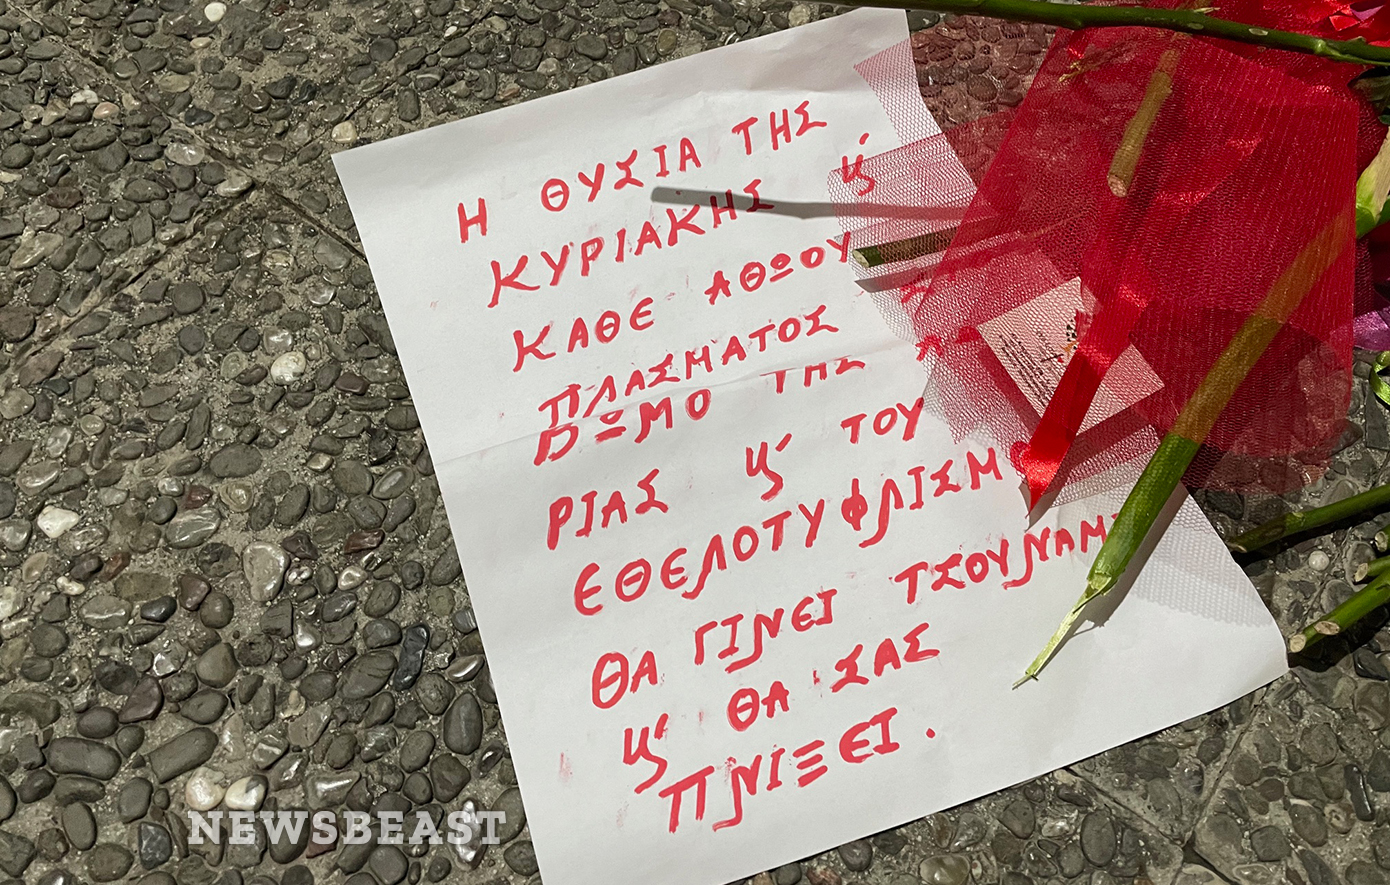 Η ΘΥΣΙΑ ΤΗΣ
ΚΥΡΙΑΚΗΣ ϗ
ΚΑΘΕ ΑΘΩΟΥ
ΠΛΑΣΜΑΤΟΣ
ΒΩΜΟ ΤΗΣ
ΡΙΑΣ ϗ ΤΟΥ
ΕΘΕΛΟΤΥΦΛΙΣΜ
ΘΑ ΓΙΝΕΙ ΤΣΟΥΝΑΜ
ϗ ΘΑ ΣΑΣ
ΠΝΙΞΕΙ.
NEWSBEAST